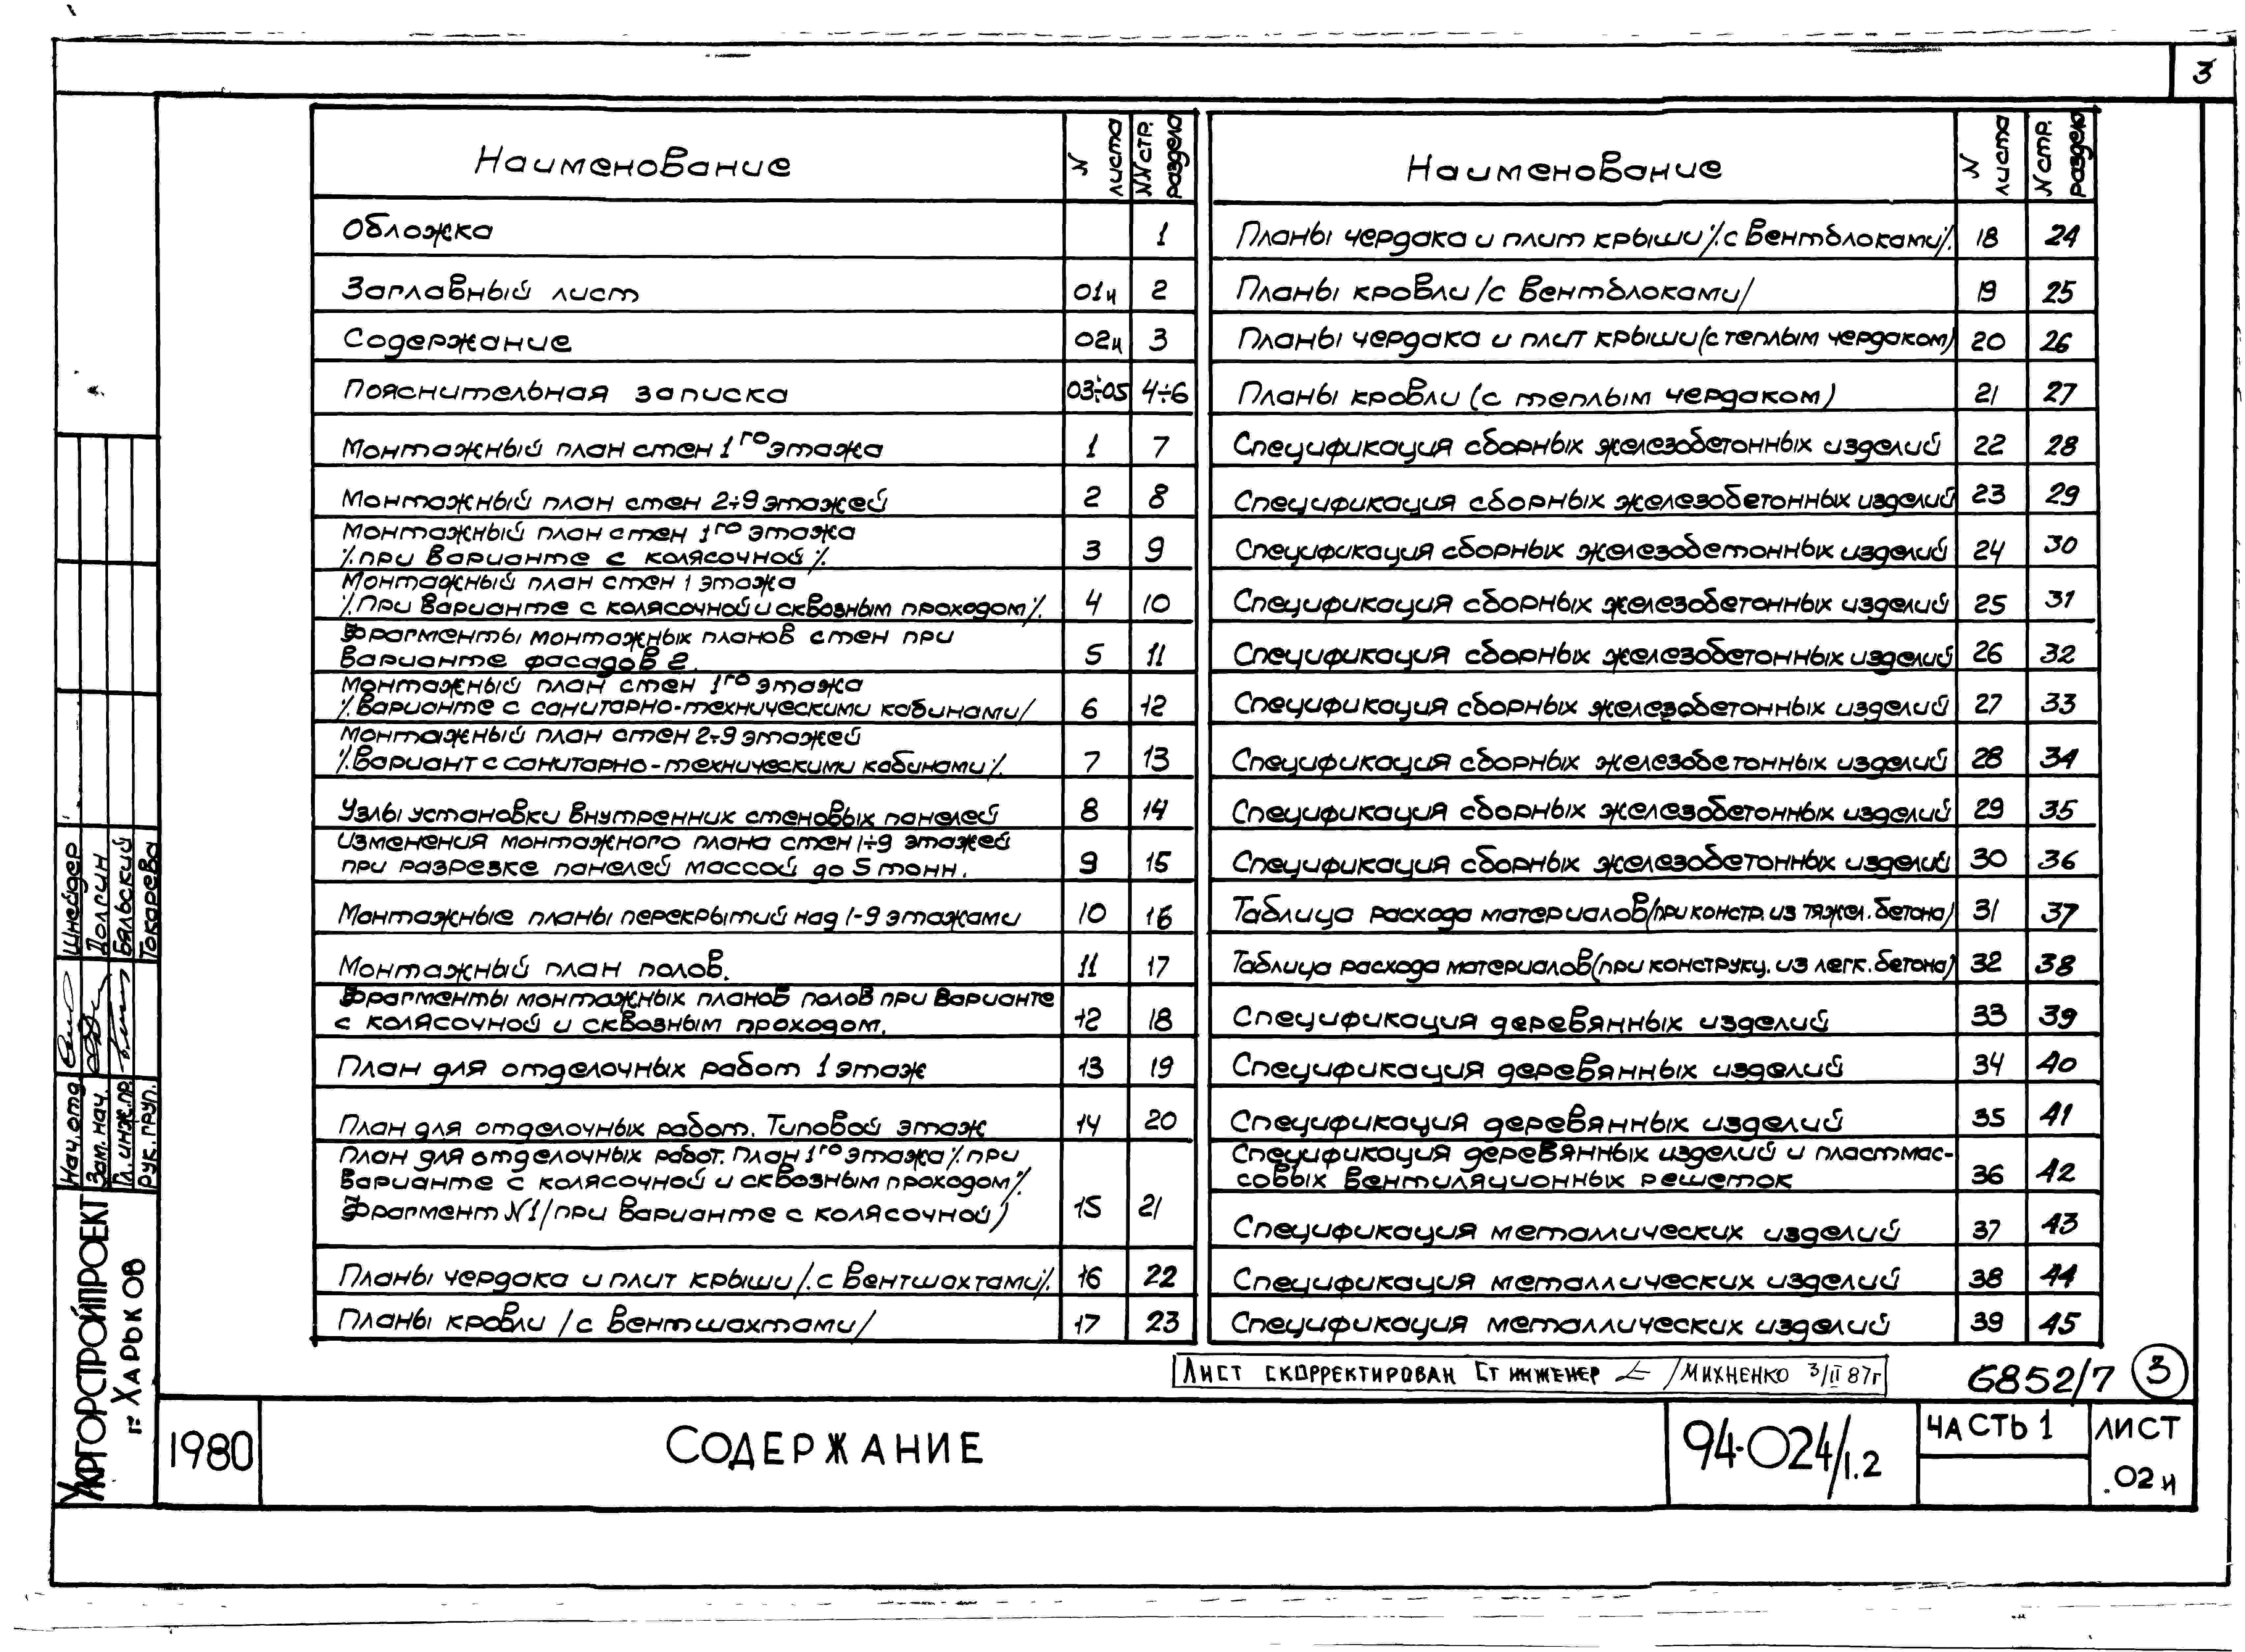 3
Наименование
N листа
NN стр. раздела
Обложка 1
Заглавный лист 01и 2
Содержание 02и 3
Пояснительная записка 03÷05 4÷6
Монтажный план стен 1го этажа 1 7
Монтажный план стен 2÷9 этажей 2 8
Монтажный план стен 1го этажа
/.при варианте с колясочной/. 3 9
Монтажный план стен 1 этажа
/.При варианте с колясочной и сквозным проходом/. 4 10
Фрагменты монтажных планов стен при
варианте фасадов 2. 5 11
Монтажный план стен 1го этажа
/.Варианте с санитарно-техническими кабинами/ 6 12
Монтажный план стен 2÷9 этажей
/.Вариант с санитарно-техническими кабинами/. 7 13
Узлы установки внутренних стеновых панелей 8 14
Изменения монтажного плана стен 1÷9 этажей
при разрезке панелей массой до 5 тонн. 9 15
Монтажные планы перекрытий над 1-9 этажами 10 16
Монтажный план полов. 11 17
Фрагменты монтажных планов полов при варианте
с колясочной и сквозным проходом. 12 18
План для отделочных работ 1 этаж 13 19
План для отделочных работ. Типовой этаж 14 20
План для отделочных работ. План 1го этажа /.при
варианте с колясочной и сквозным проходом/.
Фрагмент N1/при варианте с колясочной) 15 21
Планы чердака и плит крыши/.с вентшахтами/. 16 22
Планы кровли /с вентшахтами/ 17 23
Наименование
N листа
N стр. раздела
Планы чердака и плит крыши/.с вентблоками/. 18 24
Планы кровли/с вентблоками/ 19 25
Планы чердака и плит крыши(с теплым чердаком) 20 26
Планы кровли (с теплым чердаком) 21 27
Спецификация сборных железобетонных изделий 22 28
Спецификация сборных железобетонных изделий 23 29
Спецификация сборных железобетонных изделий 24 30
Спецификация сборных железобетонных изделий 25 31
Спецификация сборных железобетонных изделий 26 32
Спецификация сборных железобетонных изделий 27 33
Спецификация сборных железобетонных изделий 28 34
Спецификация сборных железобетонных изделий 29 35
Спецификация сборных железобетонных изделий 30 36
Таблица расхода материалов(при констр. из тяжел. бетона) 31 37
Таблица расхода материалов(при конструкц. из легк. бетона) 32 38
Спецификация деревянных изделий 33 39
Спецификация деревянных изделий 34 40
Спецификация деревянных изделий 35 41
Спецификация деревянных изделий и пластмас-
совых вентиляционных решеток 36 42
Спецификация металлических изделий 37 43
Спецификация металлических изделий 38 44
Спецификация металлических изделий 39 45
Лист скорректирован Ст инженер /Михненко 3/II 87г
6852/7 3
Нач.отд Шнейдер
Зам.нач.
Гл.инж.пр. Бяльский
Рук.груп. Токарева
Укргорстройпроект
г. Харьков
1980
Содержание
94-024/1.2
Часть 1
Лист
.02и